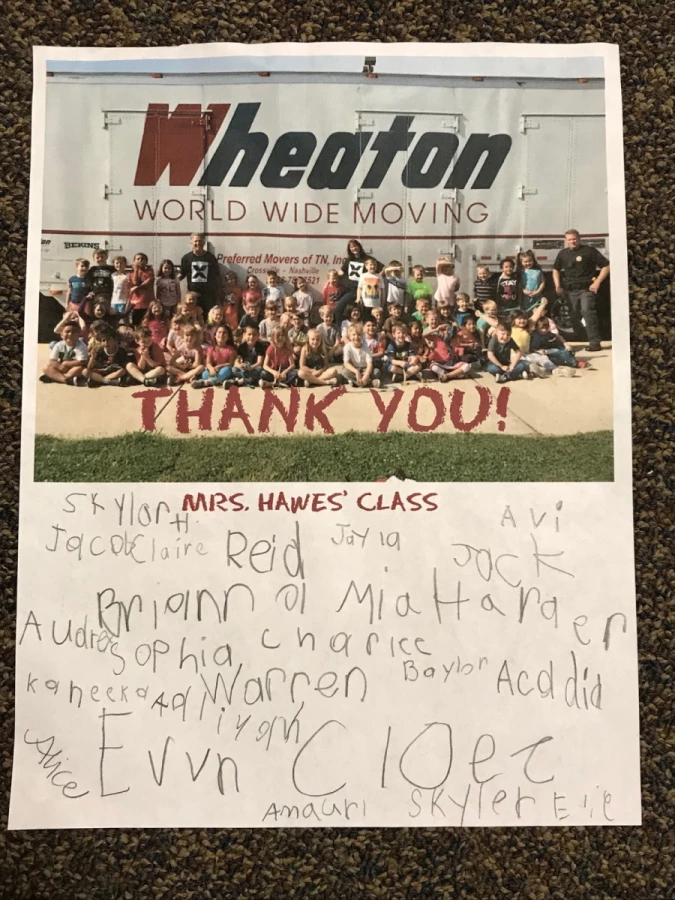 Wheaton
WORLD WIDE MOVING
BEKINS
Preferred Movers of TN, Inc
Crossville - Nashville
THANK YOU!
MRS. HAWES' CLASS
Skylar H. Avi
Jacob Claire Reid Jayla Jack
Briann a Mia Harper
Audrey Sophia Charlee
Kaneeka Aaliyah Warren Baylor Acadia
Alice Evvn Cloee
Amauri Skyler Ellie